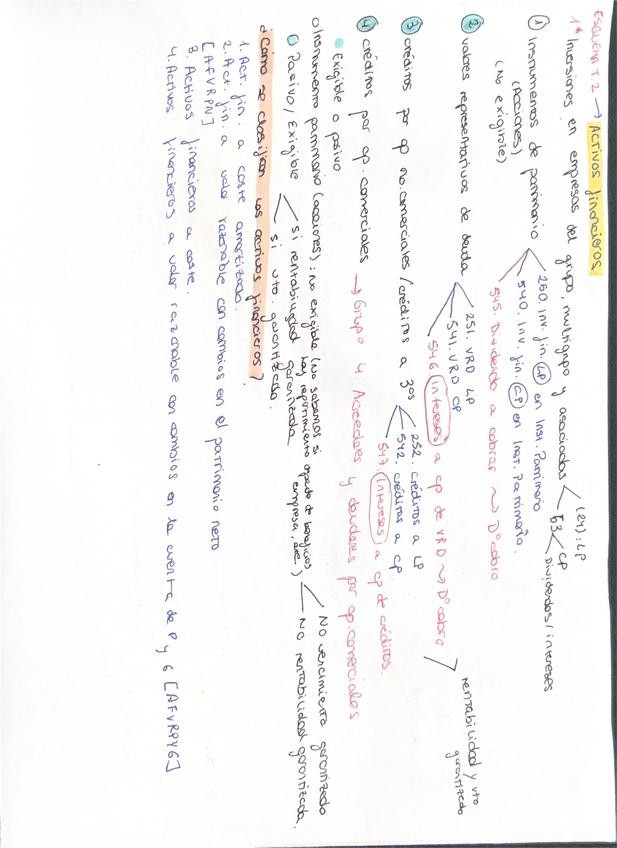 ESQUEMA T.2 → ACTIVOS financieros
1* Inversiones en empresas del grupo, multigrupo y asociadas < (24): LP
53 < CP
Dividendos/intereses
① Instrumentos de patrimonio < 250. Inv. fin. LP en Inst. Patrimonio
(Acciones)
540. Inv. fin. CP en Inst. Patrimonio.
(No exigible)
545. Dividendo a cobrar ~> Dº cobro
② valores representativos de deuda < 251. VRD LP
541. VRD CP
546 Intereses a cp de VRD ~> Dº cobro > rentabilidad y vto garantizado
③ créditos por op no comerciales / créditos a 3os < 252. créditos a LP
542. créditos a CP
547. Intereses a cp de créditos.
④ créditos por op. comerciales → Grupo 4 Acreedores y deudores por op. comerciales
Exigible o pasivo
o Instrumento patrimonio (acciones): no exigible (No sabemos si hay repartimiento de beneficios empresa,) < No vencimiento garantizado
No rentabilidad garantizada.
Pasivo / Exigible < si rentabilidad garantizada
si vto. garantizado.
¿Cómo se clasifican los activos financieros?
1. Act. fin. a coste amortizado.
2. Act. fin. a valor razonable con cambios en el patrimonio neto
[AFVRPN]
3. Activos financieros a coste.
4. Activos financieros a valor razonable con cambios en la cuenta de P y G [AFVRPYG]